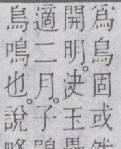 為烏固或
開明。決玉
適二月。子
烏鳴也。說